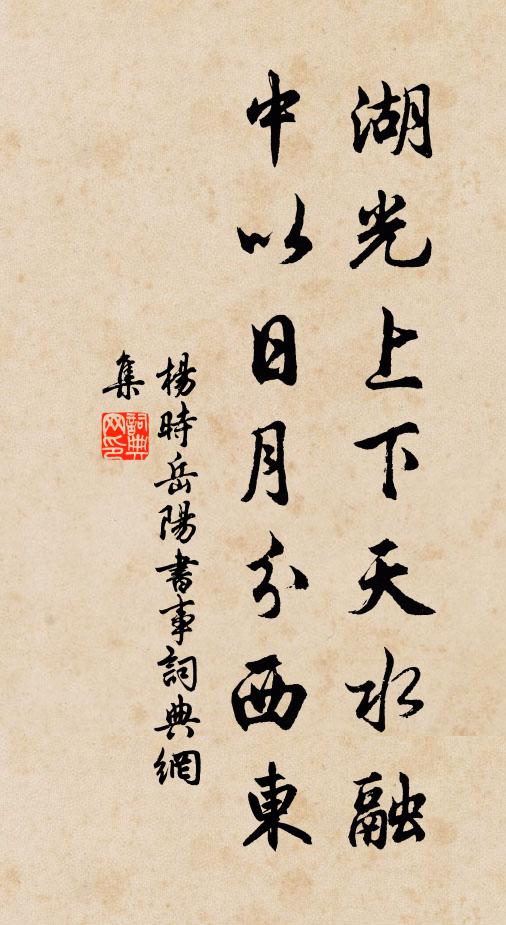 湖光上下天水融
中以日月分西東
楊時岳陽書事詞典網
集
詞典
网印